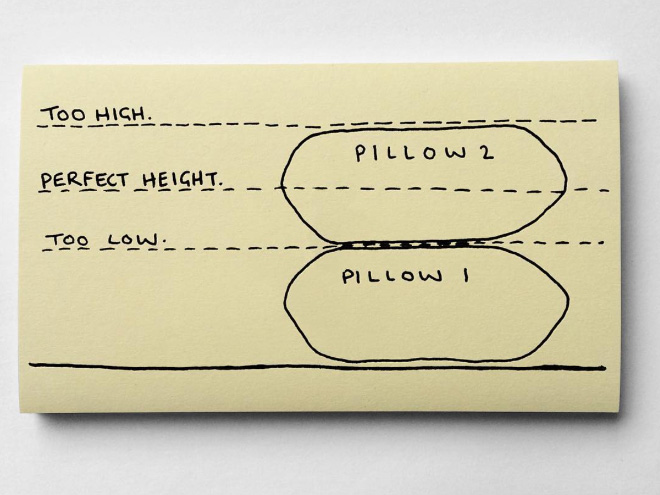 TOO HIGH.
PILLOW 2
PERFECT HEIGHT.
TOO LOW.
PILLOW 1